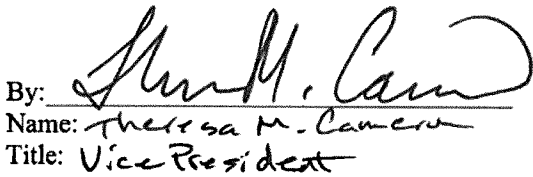 By: Theresa M. Cameron
Name: Theresa M. Cameron
Title: Vice President